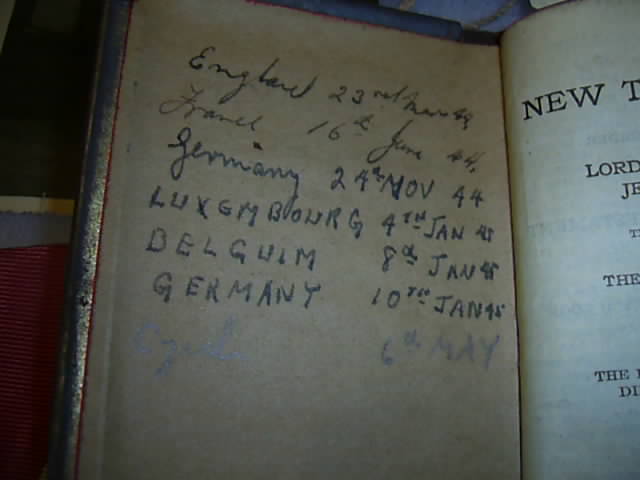 England 23rd
France 16th June 44.
Germany 24th NOV 44
LUXEMBOURG 4TH JAN 45
BELGUIM 8th JAN 45
GERMANY 10TH JAN 45
6th MAY
NEW T
LORD
JE
T
THE
THE
DI